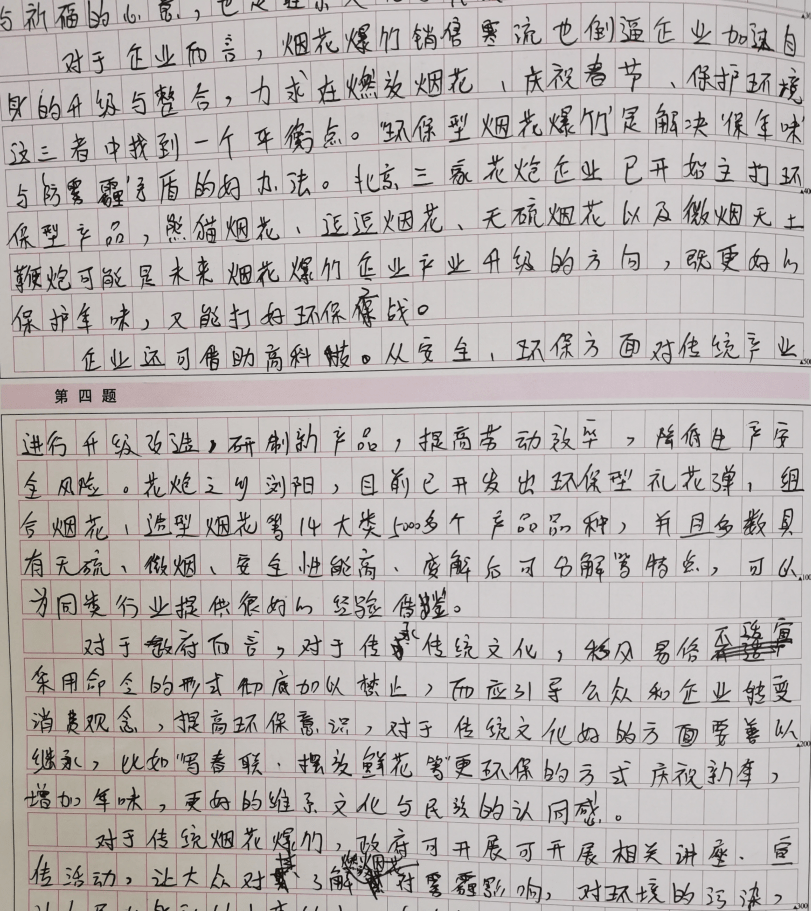 与祈福的心意，也是
对于企业而言，烟花爆竹销售寒流也倒逼企业加速自
身的升级与整合，力求在燃放烟花、庆祝春节、保护环境
这三者中找到一个平衡点。“环保型烟花爆竹”是解决“保年味”
与“防雾霾”矛盾的好办法。北京三家花炮企业已开始主打环
保型产品，熊猫烟花、逗逗烟花、无硫烟花以及微烟无土
鞭炮可能是未来烟花爆竹企业产业升级的方向，既更好的
保护年味，又能打好环保战。
企业还可借助高科技。从安全、环保方面对传统产业
第四题
进行升级改造，研制新产品，提高劳动效率，降低生产安
全风险。花炮之乡浏阳，目前已开发出环保型礼花弹、组
合烟花、造型烟花等14大类5000多个产品品种，并且多数具
有无硫、微烟、安全性能高、废解后可分解等特点，可以
为同类行业提供很好的经验借鉴。
对于政府而言，对于传承传统文化，移风易俗不适宜
采用命令的形式彻底加以禁止，而应引导公众和企业转变
消费观念，提高环保意识，对于传统文化好的方面要善以
继承，比如“写春联、摆放鲜花”等更环保的方式庆祝新年，
增加年味，更好的维系文化与民族的认同感。
对于传统烟花爆竹，政府可开展可开展相关讲座、宣
传活动，让大众对其了解燃烟花对雾霾影响，对环境的污染，